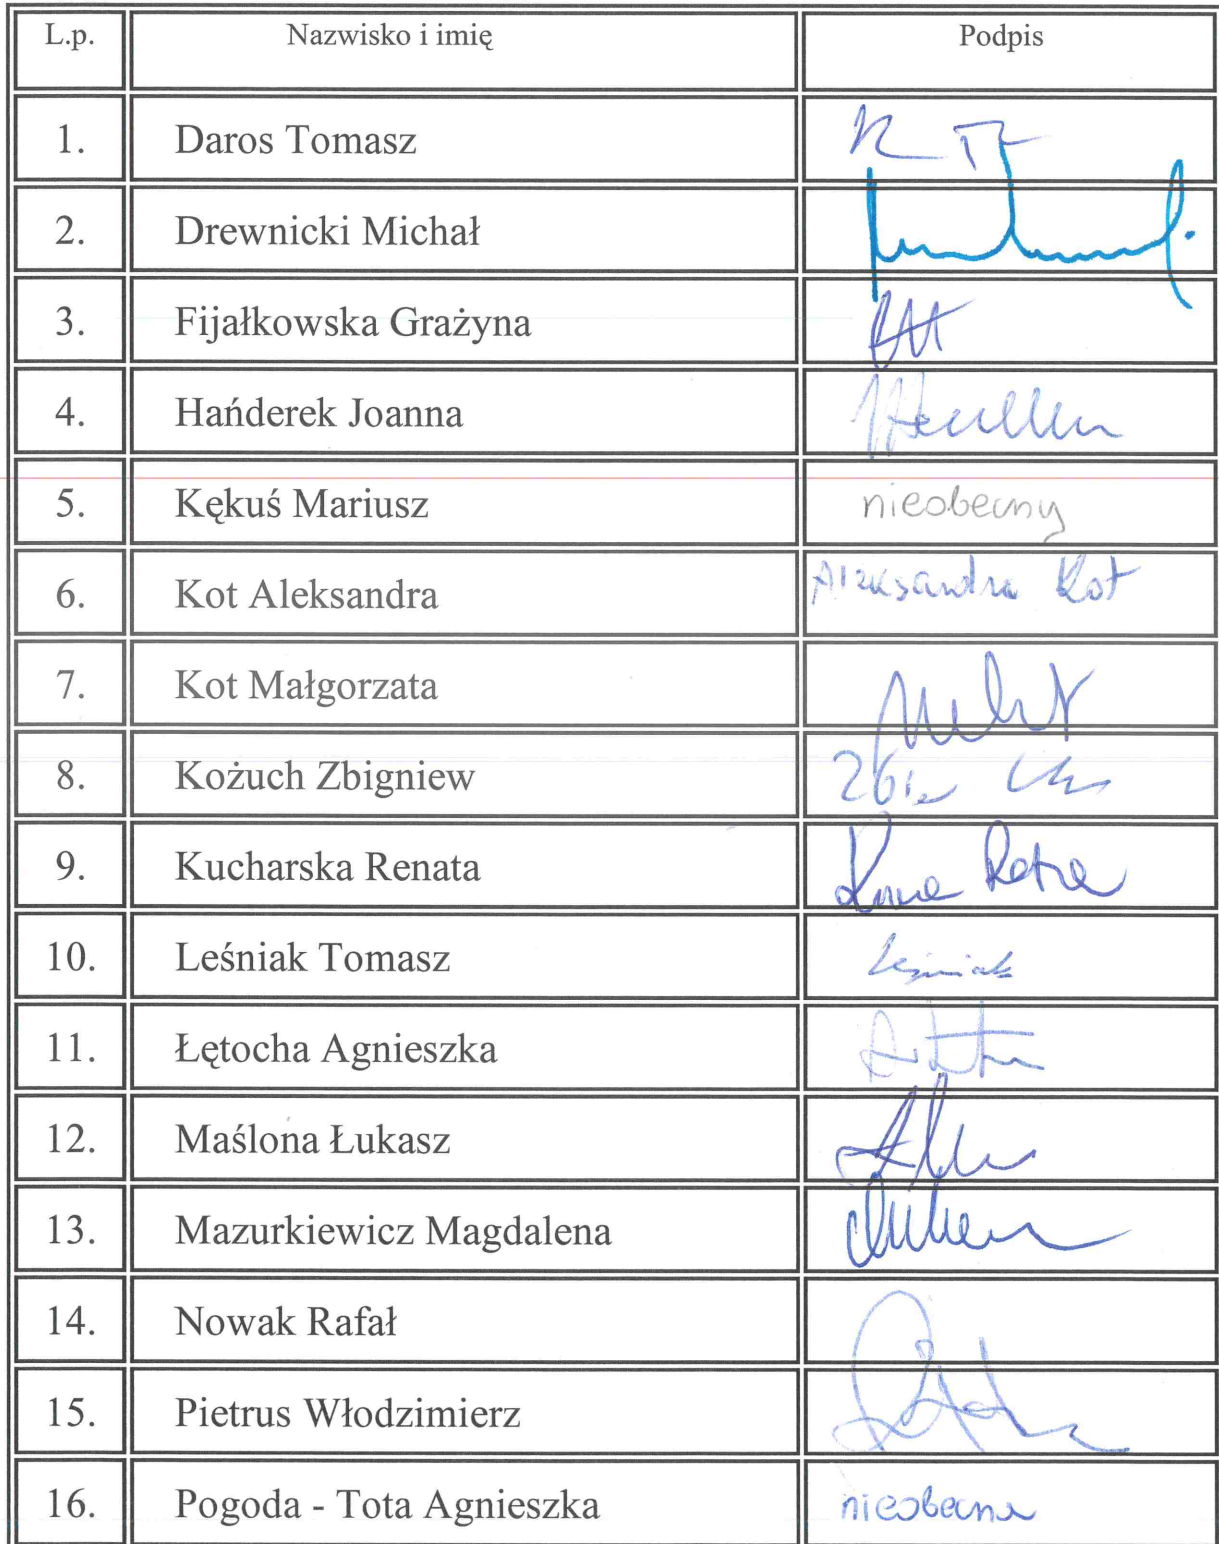 L.p. Nazwisko i imię Podpis
1. Daros Tomasz
2. Drewnicki Michał
3. Fijałkowska Grażyna
4. Hańderek Joanna
5. Kękuś Mariusz nieobecny
6. Kot Aleksandra Aleksandra Kot
7. Kot Małgorzata
8. Kożuch Zbigniew
9. Kucharska Renata
10. Leśniak Tomasz Leśniak
11. Łętocha Agnieszka
12. Maślona Łukasz
13. Mazurkiewicz Magdalena
14. Nowak Rafał
15. Pietrus Włodzimierz
16. Pogoda - Tota Agnieszka nieobecna